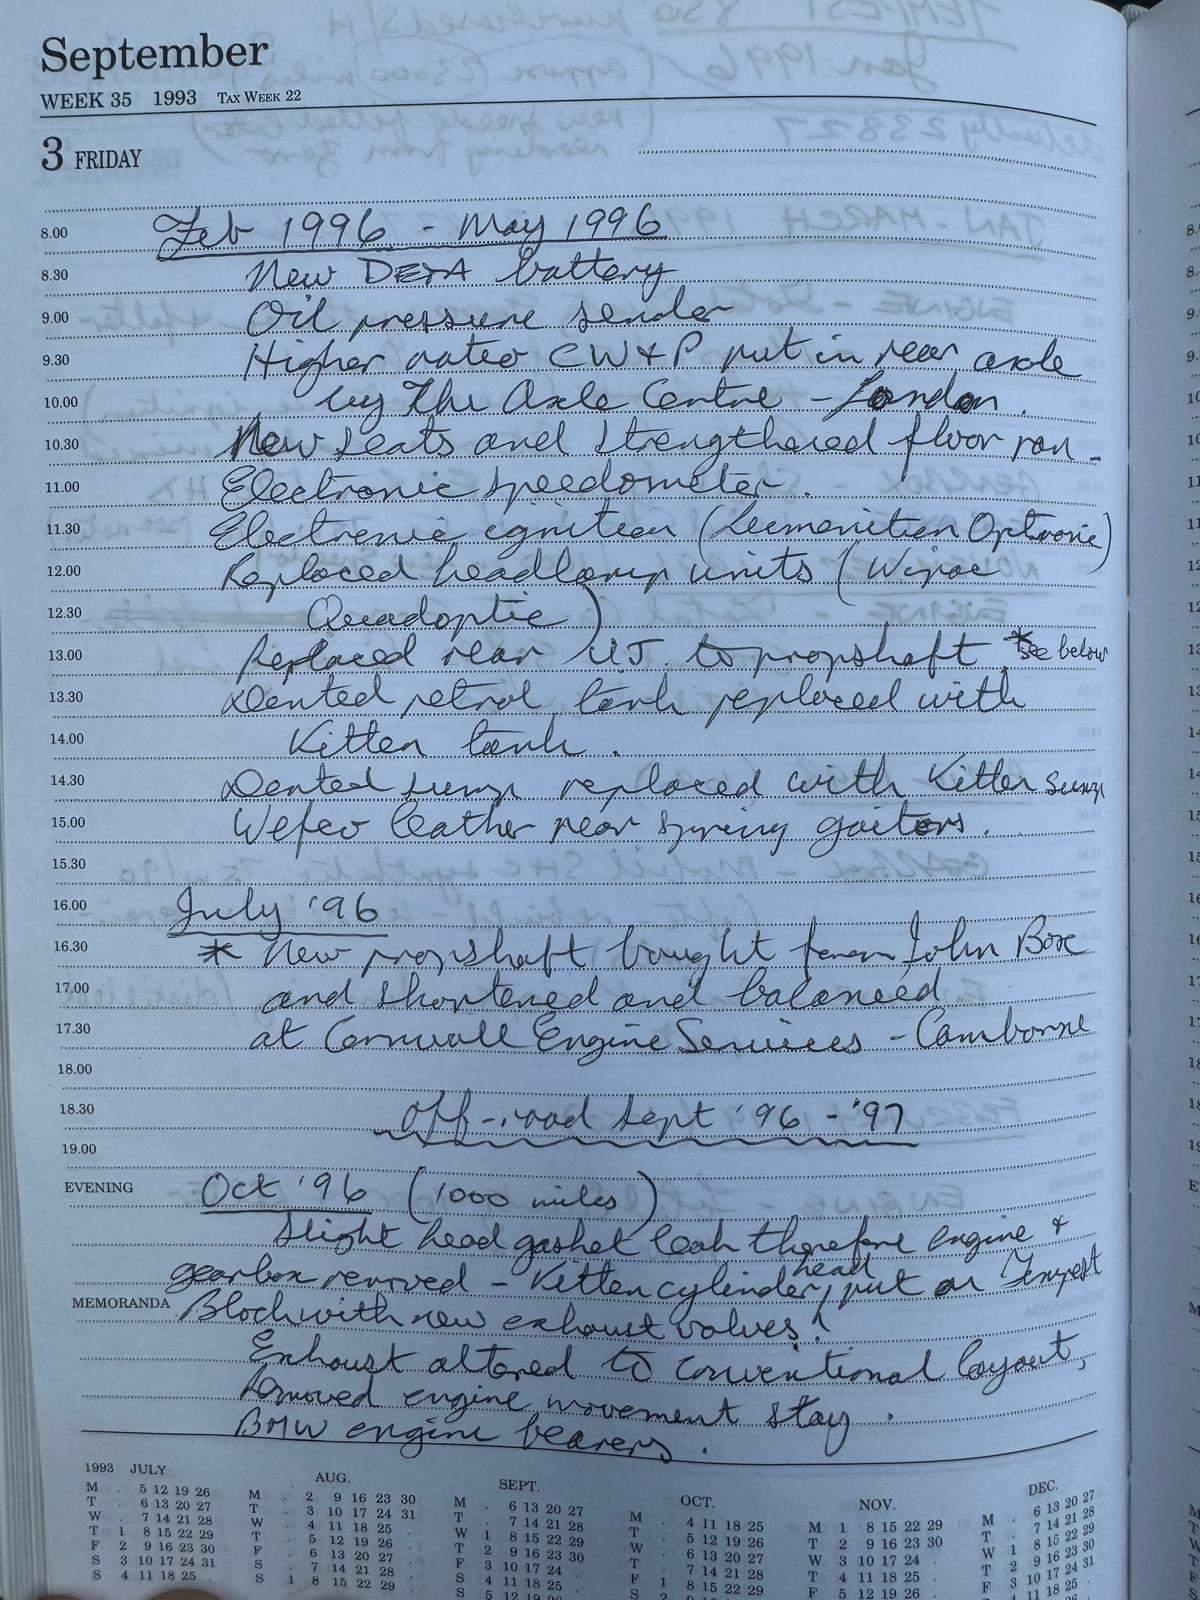 September
WEEK 35 1993 TAX WEEK 22
3 FRIDAY
8.00 Feb 1996 - May 1996
8.30 New DETA battery
9.00 Oil pressure sender
9.30 Higher ratio CW & P put in rear axle
10.00 by The Axle Centre - London.
10.30 New seats and strengthened floor pan -
11.00 Electronic speedometer.
11.30 Electronic ignition (Lumenition Optronic)
12.00 Replaced headlamp units (Wipac
12.30 Quadoptic)
13.00 Replaced rear U.J. to propshaft *see below
13.30 Dented petrol tank replaced with
14.00 Kitten tank.
14.30 Dented sump replaced with Kitten sump
15.00 Wefco leather rear spring gaitors.
15.30
16.00 July '96
16.30 * New propshaft bought from John Box
17.00 and shortened and balanced
17.30 at Cornwall Engine Services - Camborne
18.00
18.30 Off-road Sept '96 - '97
19.00
EVENING Oct '96 (1000 miles)
Slight head gasket leak therefore engine &
gearbox removed - Kitten cylinder head, put on Tempest
MEMORANDA Block with new exhaust valves!
Exhaust altered to conventional layout,
Removed engine movement stay.
BMW engine bearers.
1993 JULY AUG. SEPT. OCT. NOV. DEC.
M . 5 12 19 26
T . 6 13 20 27
W . 7 14 21 28
T 1 8 15 22 29
F 2 9 16 23 30
S 3 10 17 24 31
S 4 11 18 25 .
M . 2 9 16 23 30
T . 3 10 17 24 31
W . 4 11 18 25 .
T . 5 12 19 26 .
F . 6 13 20 27 .
S . 7 14 21 28 .
S 1 8 15 22 29 .
M . 6 13 20 27
T . 7 14 21 28
W 1 8 15 22 29
T 2 9 16 23 30
F 3 10 17 24 .
S 4 11 18 25 .
S 5 12 19 26 .
M . 4 11 18 25
T . 5 12 19 26
W . 6 13 20 27
T . 7 14 21 28
F 1 8 15 22 29
M 1 8 15 22 29
T 2 9 16 23 30
W 3 10 17 24 .
T 4 11 18 25 .
F 5 12 19 26 .
M . 6 13 20 27
T . 7 14 21 28
W 1 8 15 22 29
T 2 9 16 23 30
F 3 10 17 24 31
S 4 11 18 25 .